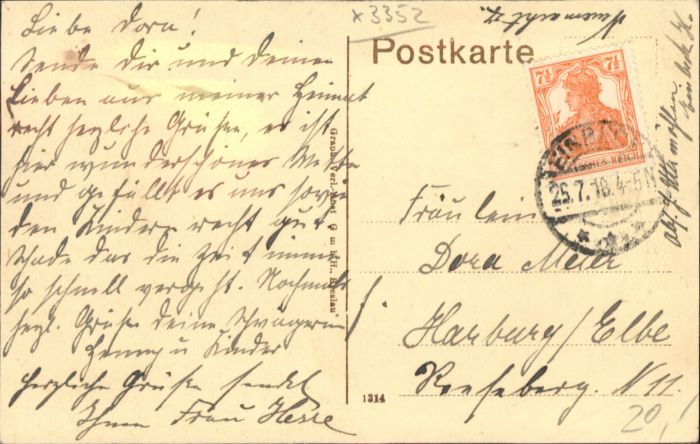 Liebe Dora!
Sende dir und deinen
Lieben aus meiner Heimat
recht herzliche Grüße, es ist
hier wunderschönes Wetter
und gefällt es uns sowie
den Kindern recht gut
Schade das die Zeit immer
so schnell vergeht. Nochmals
herzl. Grüße deine Schwägerin
Henny u Kinder
Herzliche Grüße sendet
Ihnen Frau Hesse
x3352
Postkarte
7½ 7½
DEUTSCHES REICH
25.7.18.4-5N
Graph. Verl.-Anst. G. m. b. H., Breslau
Fräulein
Dora Meier
Harburg/Elbe
Reeseberg. N 11
1314
20,